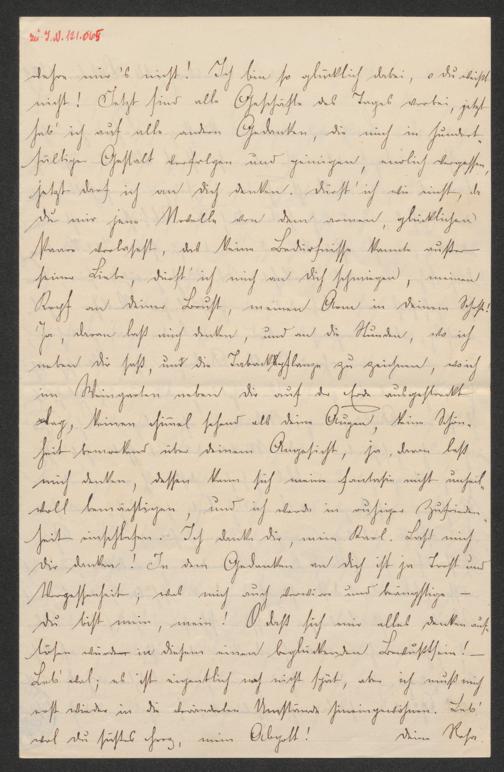 zu I.N. 121.065
wehre mir's nicht! Ich bin so glücklich dabei, o du weißt
nicht! Jetzt sind alle Geschäfte des Tages vorbei, jetzt
hab' ich auf alle andern Gedanken, die mich in hundert-
fältiger Gestalt verfolgen und peinigen, endlich vergessen,
jetzt darf ich an Dich denken. Durft' ich wie einst, da
Du mir jene Novelle von dem armen, glücklichen
Paare vorlasest, das keine Bedürfnisse kannte außer
seiner Liebe, dürft' ich mich an Dich schmiegen, meinen
Kopf an deiner Brust, meinen Arm in deinem
Ja, daran laß mich denken, und an die Stunden, wo ich
neben dir saß, und die Tabackpflanze zu zeichnen, wo ich
im Weingarten neben dir auf der Erde ausgestreckt
lag, keinen Himmel sehend als deine Augen, kein Schön-
heit bemerkend über deinem Angesicht, ja, daran laß
mich denken, dessen kann sich meine Fantasie nicht unheil-
voll bemächtigen, und ich werde in ruhiger Zufrieden-
heit einschlafen. Ich danke dir, mein Karl. Laß mich
dir danken! In dem Gedanken an dich ist ja Trost und
Vergessenheit; was mich auch verwirre und beängstige –
du bist mein, mein! O daß sich mir alles denken auf-
lösen würde in diesem einen beglückenden Bewußtsein! –
Leb' wol; es ist eigentlich noch nicht spät, aber ich muß mich
erst wieder in die veränderten Umstände hineingewöhnen. Leb'
wol du süßes Herz, mein Abgott! Deine Rosa.